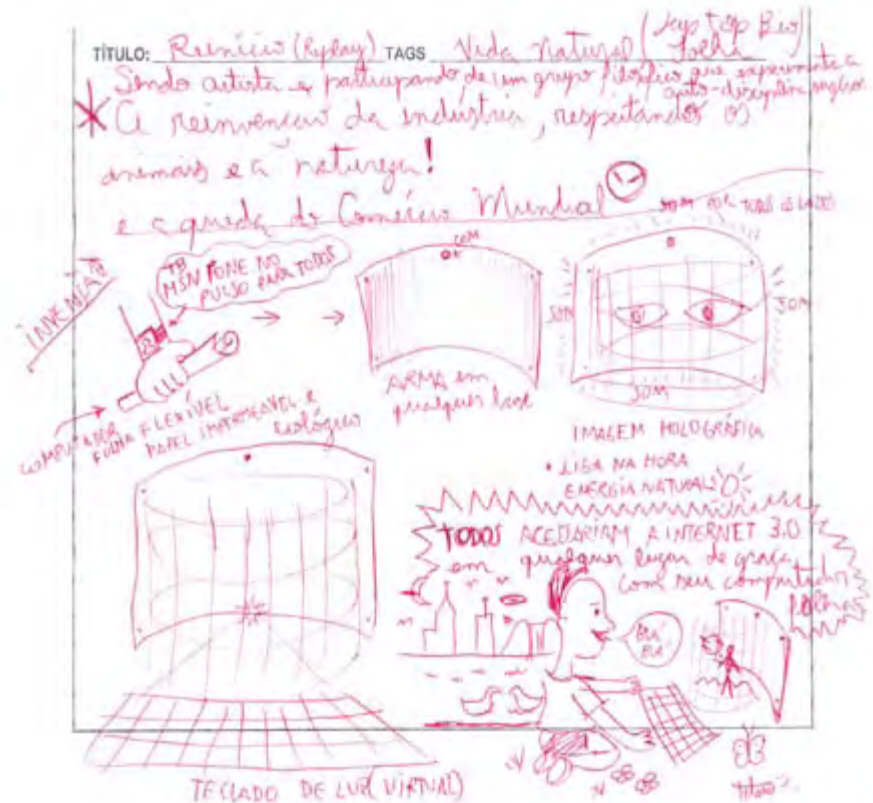 TÍTULO: Reinício (Replay) TAGS Vida Natural (Lap top Bio Folha)
Sendo artista e participando de um grupo filósofico que experimenta a auto-disciplina
* A reinvenção da indústria, respeitando os
animais e a natureza!
e a queda do Comércio Mundial
SOM POR TODOS OS LADOS
INVENÇÃO
TB
MSN FONE NO
PULSO PARA TODOS
COM
SOM
SOM
SOM
ARMA em
qualquer lugar
COMPUTADOR
FOLHA FLEXÍVEL
PAPEL IMPERMEAVEL e
ecológico
IMAGEM HOLOGRÁFICA
• LIGA NA HORA
ENERGIA NATURAL
TODOS ACESSARIAM A INTERNET 3.0
em qualquer lugar de graça
com seu computador
folha
BLÁ
BLÁ
TECLADO DE LUZ (VIRTUAL)